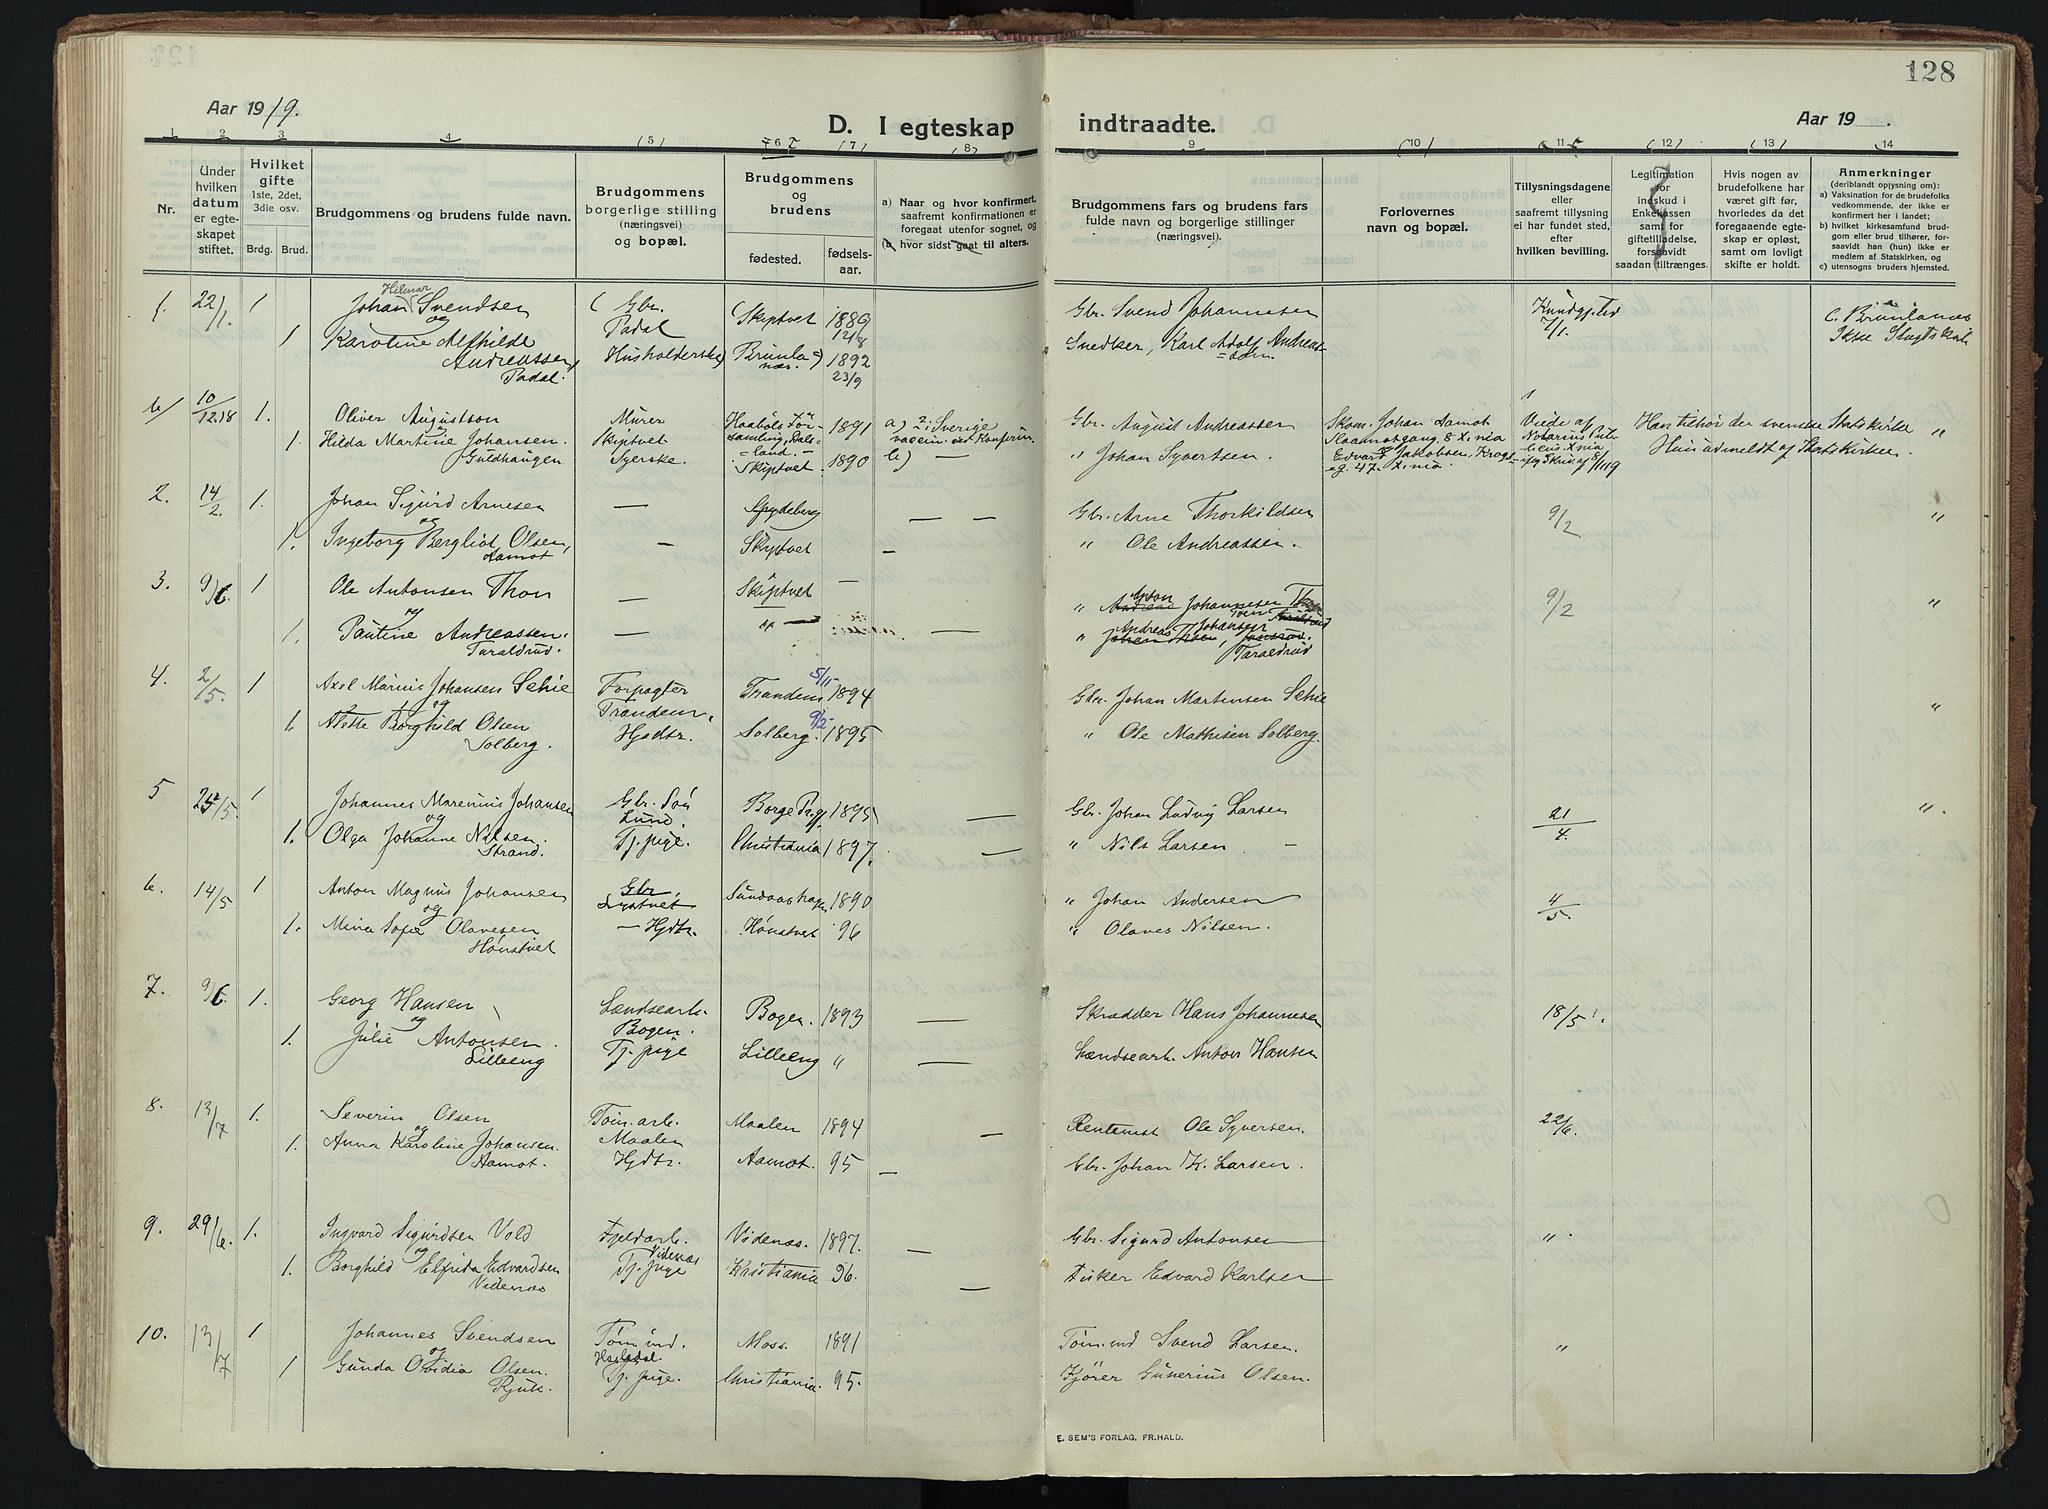 128
Aar 1919.
D. I egteskap indtraadte.
Aar 19 .
1 2 3 4 (5) 6 (7) (8) 9 (10) 11 (12) (13) 14
Nr.
Under hvilken datum er egteskapet stiftet.
Hvilket gifte 1ste, 2det, 3die osv.
Brdg. Brud.
Brudgommens og brudens fulde navn.
Brudgommens borgerlige stilling (næringsvei) og bopæl.
Brudgommens og brudens
fødested. fødselsaar.
a) Naar og hvor konfirmert, saafremt konfirmationen er foregaat utenfor sognet, og
b) hvor sidst gaat til alters.
Brudgommens fars og brudens fars fulde navn og borgerlige stillinger (næringsvei).
Forlovernes navn og bopæl.
Tillysningsdagene eller saafremt tillysning ei har fundet sted, efter hvilken bevilling.
Legitimation for indskud i Enkekassen samt for giftetilladelse, forsaavidt saadan tiltrænges.
Hvis nogen av brudefolkene har været gift før, hvorledes da det foregaaende egteskap er opløst, samt om lovligt skifte er holdt.
Anmerkninger (deriblandt opysning om):
a) Vaksination for de brudefolks vedkommende, der ikke er konfirmert her i landet;
b) hvilket kirkesamfund brudgom eller brud tilhører, forsaavidt han (hun) ikke er medlem af Statskirken, og
c) utensogns bruders hjemsted.
1. 22/1. 1 Johan Hilmar Svendsen Gbr. Padal Skiptvet 1889 12/8 Gbr. Svend Johannesen Kundgj. tid 7/1. c. Brunlanes
og
1 Karoline Alfhilde Andreassen, Padal. Husholderske Brunlanæs. 1892 23/9 Snedker, Karl Adolf Andreassen Ikke Slegtskab
b/ 10/12.18 1. Oliver Augustson Murer 1891 a) i Sverige Gbr. August Andreassen Skom. Johan Aamot Viede af Han tilhør den svenske Statskirke "
1. Hilda Martine Johansen. Guldhaugen Skiptvet Syerske. Skiptvet. 1890 b) — " Johan Syvertsen. Edvard Jakobsen, Hun udmeldt af Statskirken
2. 14/2. 1. Johan Sigurd Arnesen — Spydeberg — — Gbr. Arne Thorkildsen 9/2 "
og
1. Ingeborg Bergliot Olsen, Aamot — Skiptvet — " Ole Andreassen.
3. 9/6. 1 Ole Antonsen Thon — Skiptvet — " Anton Johannesen Thon 9/2 "
og
1. Pauline Andreassen. Taraldrud. — " — — " Andreas Johansen Taraldrud
4. 2/5. 1 Axel Marius Johansen Schie Forpagter Trandem, Trandem 5/11 1894 Gbr. Johan Martinsen Schie "
og
1. Alette Borghild Olsen Solberg. Hjdtr. Solberg. 9/2 1895 " Ole Mathisen Solberg.
5 25/5. 1 Johannes Marenius Johansen Gbr. Søn Lund. Borge Prgj. 1895 — Gbr. Johan Ludvig Larsen 21/4. "
og
1. Olga Johanne Nilsen. Strand. Tj. pige. Christiania 1897. — " Nils Larsen —
6. 14/5 1 Anton Magnus Johansen Gbr. Lystvet 1890 " Johan Andersen 4/5.
og
1. Mina Sofie Olavesen Hønstvet — Hjdtr. Hönstvet 96 " Olaves Nilsen.
7. 9/6. 1. Georg Hansen Lændsearb. Bogen. Bogen. 1893 — Skrædder Hans Johannesen 18/5.
og
1. Julie Antonsen. Lilleeng Tj. pige Lilleeng " — Lændsearb. Anton Hansen
8. 13/7 1. Severin Olsen Tøm. arb. Maalen Maalen 1894 — Rentenist Ole Syversen. 22/6.
og
1. Anna Karoline Johansen. Aamot. Hjdtr. Aamot. 95 — Gbr. Johan K. Larsen.
9. 29/6. 1. Ingvard Sigurdsen Vold Fjeldarb. Videnæs Videnæs. 1897. — Gbr. Sigurd Antonsen "
og
1. Borghild Elfrida Edvardsen Videnæs Tj. pige Kristiania 96. — Fisker Edvard Karlsen
10. 13/7 1 Johannes Svendsen Tømmd. Moss. 1891 Tømmd Svend Larsen. "
og
1 Gunda Ovidia Olsen. Rjuk. Tj. pige. Christiania. 95. Kjører Gunerius Olsen.
E. SEM'S FORLAG, FR.HALD.